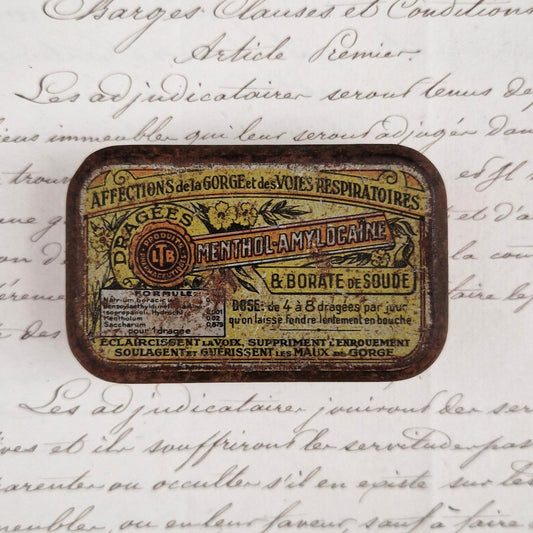 Barges Clauses et Conditions
Article Premier.
Les adjudicataires seront tenus de
immeubles qui leur seront adjugés dan
AFFECTIONS de la GORGE et des VOIES RESPIRATOIRES
DRAGÉES
PRODUITS
LTB
MENTHOL-AMYLOCAÏNE
& BORATE de SOUDE
FORMULE:
Natrium boracic
0,001
Mentholum 0,02
Saccharum 0,879
pour 1 dragée
DOSE: de 4 à 8 dragées par jour
qu'on laisse fondre lentement en bouche
ÉCLAIRCISSENT LA VOIX, SUPPRIMENT L'ENROUEMENT
SOULAGENT ET GUÉRISSENT LES MAUX DE GORGE
Les adjudicataires jouiront des ser
et ils souffriront les servitudes pas
ou occultes s'il en existe sur les
ou en leur faveur, sauf à faire